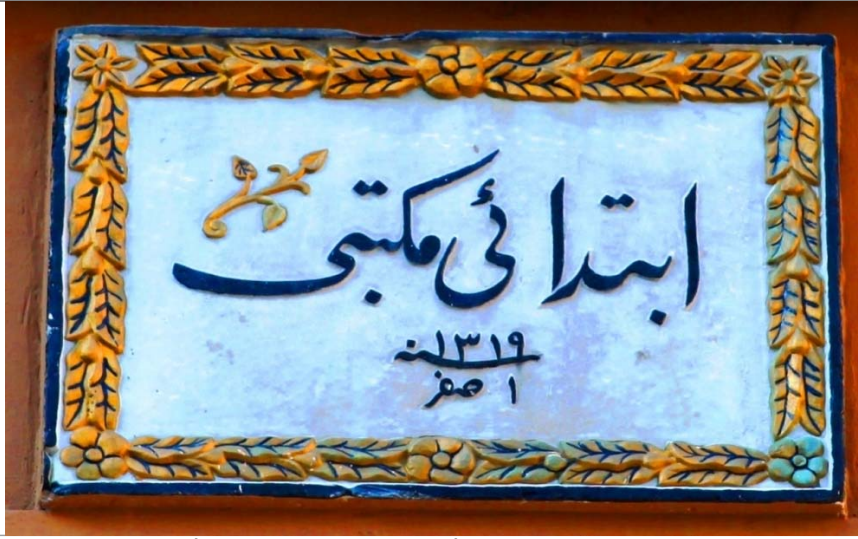 ابتدائی مكتبی
سنه ١٣١٩
١ صفر